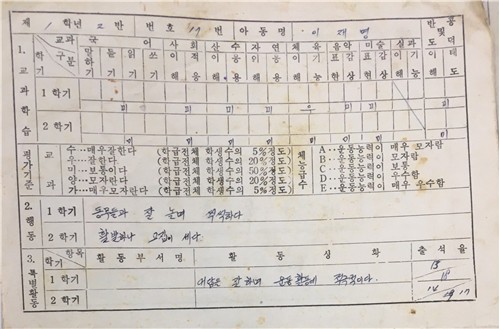 제 1 학년 2 반 번호 19 번 아동명 이재명
반공 및 도덕
1. 교과학습
교과 구분 학기
국어 사회 산수 자연 체육 음악 미술 실과
말하기 듣기 읽기 쓰기 이해 적용 이해 적용
표현 감상 표현 감상 이해 기능
이해 태도
1 학기
미 미 미 미 미 우 미 미 미
2 학기
평가기준
교과
수…매우잘한다 (학급전체 학생수의 5%정도)
우…잘한다 (학급전체 학생수의 20%정도)
미…보통이다 (학급전체 학생수의 50%정도)
양…모자란다 (학급전체 학생수의 20%정도)
가…매우모자란다 (학급전체 학생수의 5%정도)
체능급수
A…운동능력이 매우 모자람
B…운동능력이 모자람
C…운동능력이 보통
D…운동능력이 우수함
E…운동능력이 매우 우수함
2. 행동
1 학기 동무들과 잘 놀며 씩씩하다
2 학기 활발하나 고집이 세다.
3. 특별활동
항목 학기 활동부서명 활동상황 출석율
1 학기 대답을 잘 하며 운동 활동에 적극적이다.
2 학기